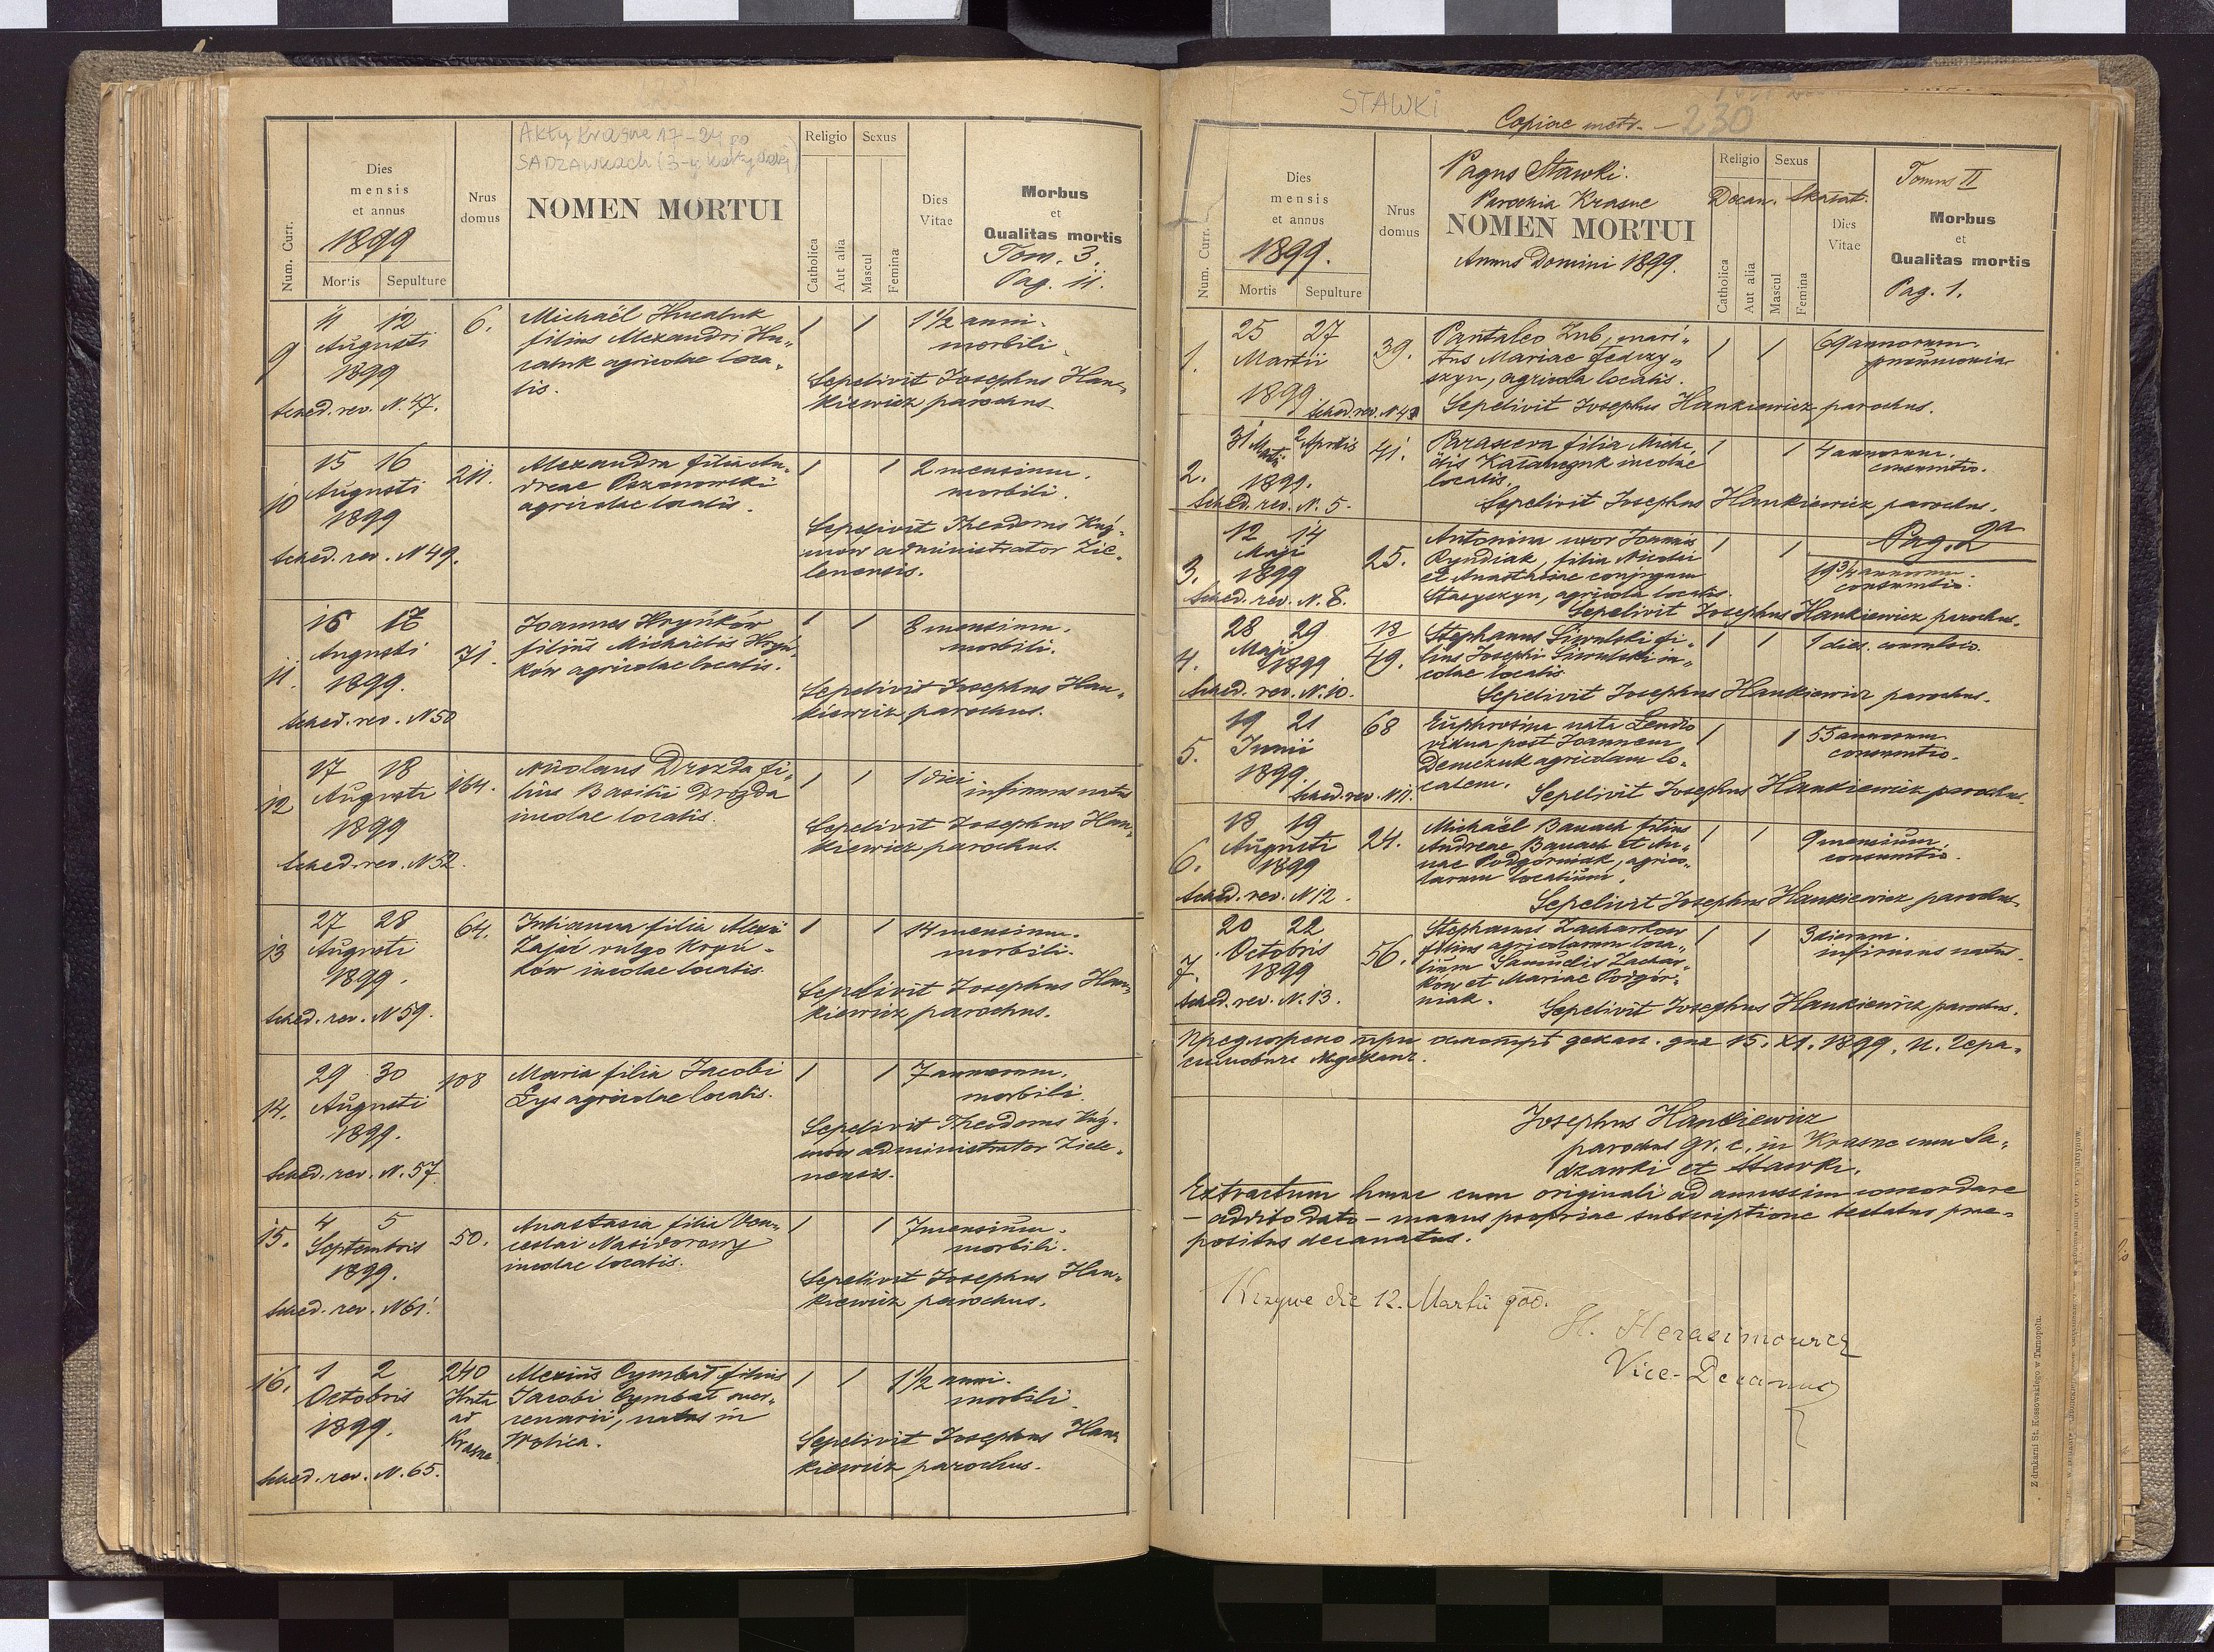 Akty Krasne 17-24 po
SADZAWKACH (3-y
Num. Curr.
Dies
mensis
et annus
1899
Mortis Sepulture
Nrus
domus
NOMEN MORTUI
Religio Sexus
Catholica
Aut alia
Mascul
Femina
Dies
Vitae
Morbus
et
Qualitas mortis
Tom. 3.
Pag. 11.
9
11 12
Augusti
1899
Sched. rev. N. 47.
6.
Michaël Hucaluk
filius Alexandri Hu„
caluk agricolae loca„
lis.
1 1
1 1/2 anni.
morbili
Sepelivit Josephus Han„
kiewicz parochus
10
15 16
Augusti
1899
Sched. rev. N 49.
211.
Alexandra filia An„
dreae
agricolae localis.
1 1
2 mensium.
morbili.
Sepelivit Theodorus
administrator Zie„
lenensis.
11.
16 17
Augusti
1899.
Sched. rev. N 50
71.
Joannes Hryńków
filius Michaëlis Hryń„
ków agricolae localis.
1 1
8 mensium.
morbili.
Sepelivit Josephus Han„
kiewicz parochus.
12
17 18
Augusti
1899
Sched. rev. N 52.
164.
Nicolaus Drozda fi„
lius Basilii Drozda
incolae localis.
1 1
1 diei
infirmus natus
Sepelivit Josephus Han„
kiewicz parochus.
13
27 28
Augusti
1899.
Sched. rev. N 59.
64.
Julianna filia Alexii
Zając vulgo Kryń„
ków incolae localis
1 1
14 mensium.
morbili.
Sepelivit Josephus Han„
kiewicz parochus.
14.
29 30
Augusti
1899.
Sched. rev. N. 57.
108
Maria filia Jacobi
Łys agricolae localis.
1 1
7 annorum.
morbili.
Sepelivit Theodorus
administrator Ziele„
nensis.
15.
4 5
Septembris
1899.
Sched. rev. N 61.
50.
Anastasia filia Ven„
ceslai
incolae localis.
1 1
7 mensium.
morbili.
Sepelivit Josephus Han„
kiewicz parochus.
16.
1 2
Octobris
1899.
Sched. rev. N. 65.
240
Huta
ad
Krasne
Alexius Cymbał filius
Jacobi Cymbał mer„
cenarii, natus in
Wolica.
1 1
1 1/2 anni.
morbili.
Sepelivit Josephus Han„
kiewicz parochus.
STAWKI
Copiae metr. - 230
Num. Curr.
Dies
mensis
et annus
1899.
Mortis Sepulture
Nrus
domus
Pagus Stawki.
Parochia Krasne
NOMEN MORTUI
Annus Domini 1899.
Religio Sexus
Decan. Skałat.
Catholica
Aut alia
Mascul
Femina
Dies
Vitae
Tomus II
Morbus
et
Qualitas mortis
Pag. 1.
1.
25 27
Martii
1899
Sched. rev. N 4
39.
Pantaleo Zub, mari„
tus Mariae Fedczy„
szyn, agricola localis.
1 1
69 annorum.
pneumonia
Sepelivit Josephus Hankiewicz parochus.
2.
31 Martii 2 Aprilis
1899.
Sched. rev. N. 5.
41.
Parascewa filia Micha„
ëlis incolae
localis.
1 1
4 annorum.
consumtio.
Sepelivit Josephus Hankiewicz parochus.
Pag. 2
3.
12 14
Maji
1899
Sched. rev. N. 8.
25.
Antonina uxor Joannis
Ryndiak, filia Nicolai
et Anastasiae conjugum
Stasyszyn, agricola localis.
1 1
19 3/4 annorum.
consumtio.
Sepelivit Josephus Hankiewicz parochus.
4.
28 29
Maji
1899
Sched. rev. N. 10.
49.
Stephanus Siwulski fi„
lius Josephi Siwulski in„
colae localis
1 1
1 dies.
Sepelivit Josephus Hankiewicz parochus.
5.
19 21
Junii
1899.
Sched. rev. N 11.
68
Euphrosina nata Lendio
vidua post Joannem
Demczuk agricolam lo„
calem.
1 1
55 annorum
consumtio.
Sepelivit Josephus Hankiewicz parochus.
6.
18 19
Augusti
1899
Sched. rev. N 12.
24.
Michaël Banach filius
Andreae Banach et An„
nae Podgórniak, agrico„
larum localium.
1 1
9 mensium.
consumtio.
Sepelivit Josephus Hankiewicz parochus
7.
20 22
Octobris
1899
Sched. rev. N. 13.
56.
Stephanus Zacharkow
filius agricolarum loca„
lium Samuelis Zachar„
ków et Mariae Podgór„
niak.
1 1
3 dierum.
infirmus natus.
Sepelivit Josephus Hankiewicz parochus.
Предложено при декан. дня 15. XI. 1899. И. Гера„
симович
Josephus Hankiewicz
parochus gr. c. in Krasne cum Sa„
dzawki et Stawki.
Extractum hunc cum originali ad amussim concordare
- addito dato - manus propriae subscriptione testatus prae„
positus decanatus.
Krzywe die 12. Martii 900.
H. Herasimowicz
Vice-Decanus
Z drukarni St. Kossowskiego w Tarnopolu.